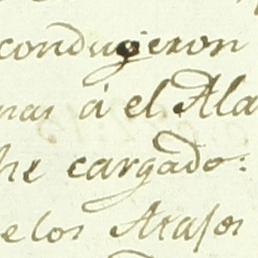 condugeron
nas á el Ala
he cargado:
e los Atajos